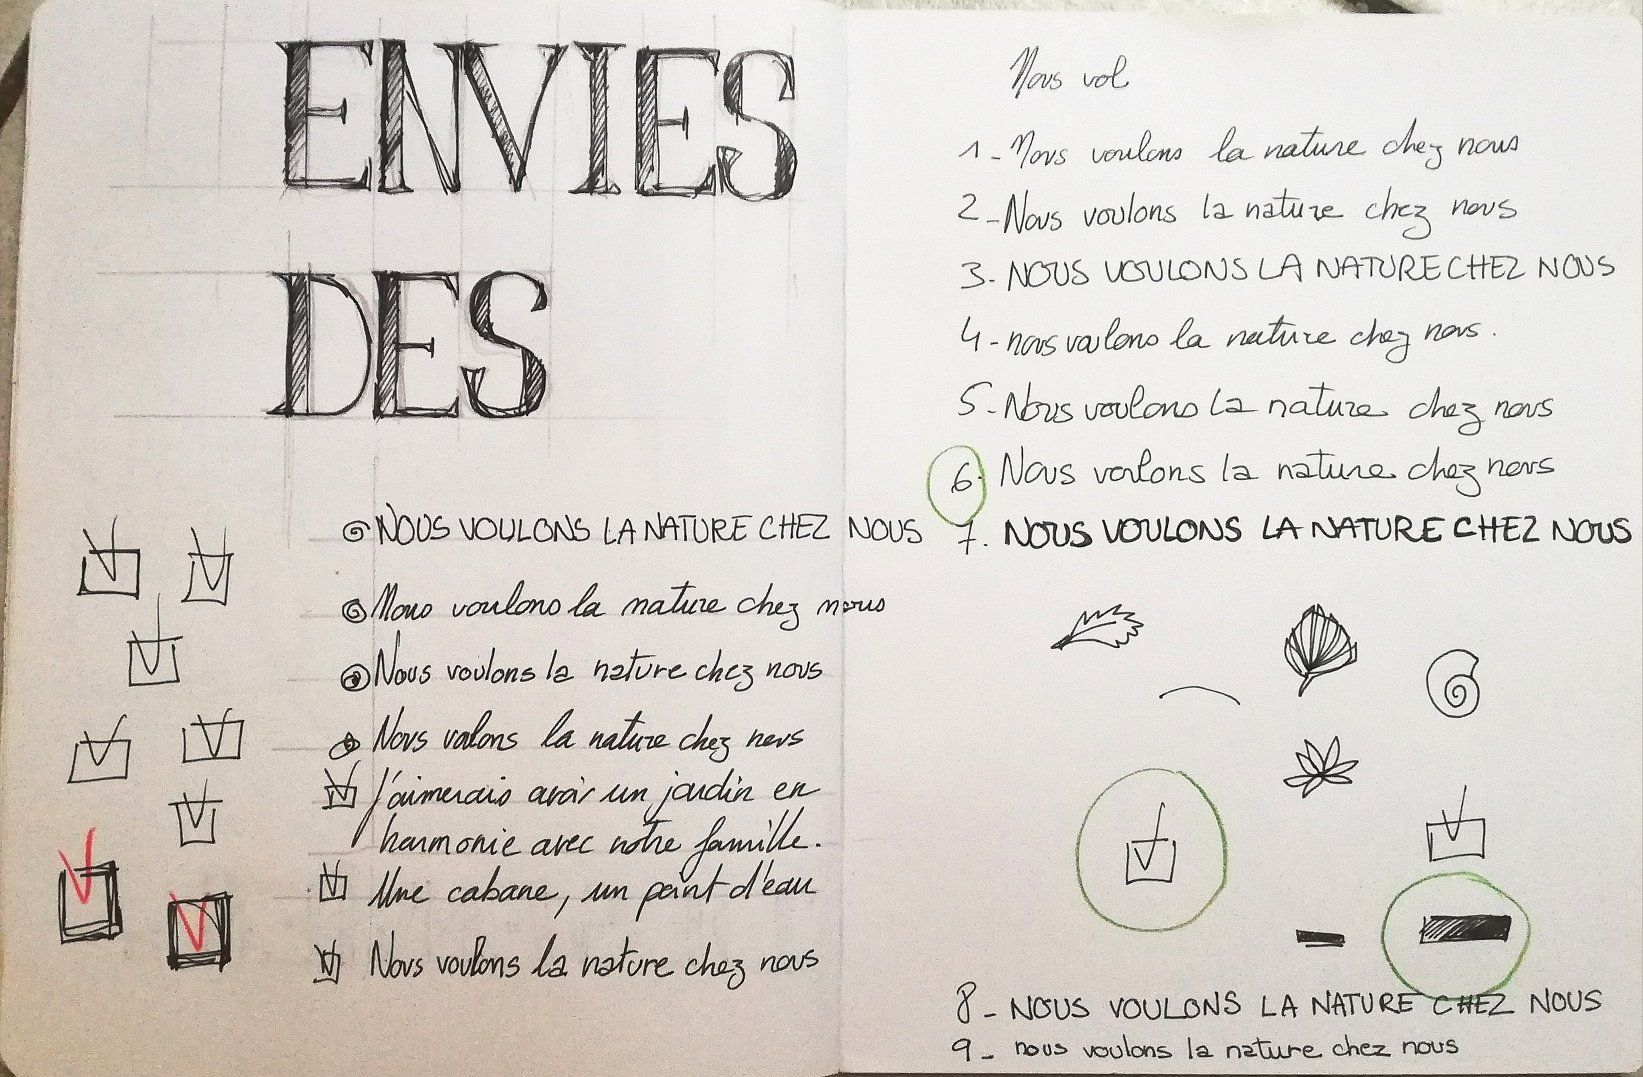 ENVIES
DES
NOUS VOULONS LA NATURE CHEZ NOUS
Nous voulons la nature chez nous
Nous voulons la nature chez nous
Nous voulons la nature chez nous
J'aimerais avoir un jardin en
harmonie avec notre famille.
Une cabane, un point d'eau
Nous voulons la nature chez nous
Nous vol
1- Nous voulons la nature chez nous
2- Nous voulons la nature chez nous
3- NOUS VOULONS LA NATURE CHEZ NOUS
4- nous voulons la nature chez nous.
5- Nous voulons la nature chez nous
6. Nous voulons la nature chez nous
7. NOUS VOULONS LA NATURE CHEZ NOUS
8- NOUS VOULONS LA NATURE CHEZ NOUS
9- nous voulons la nature chez nous